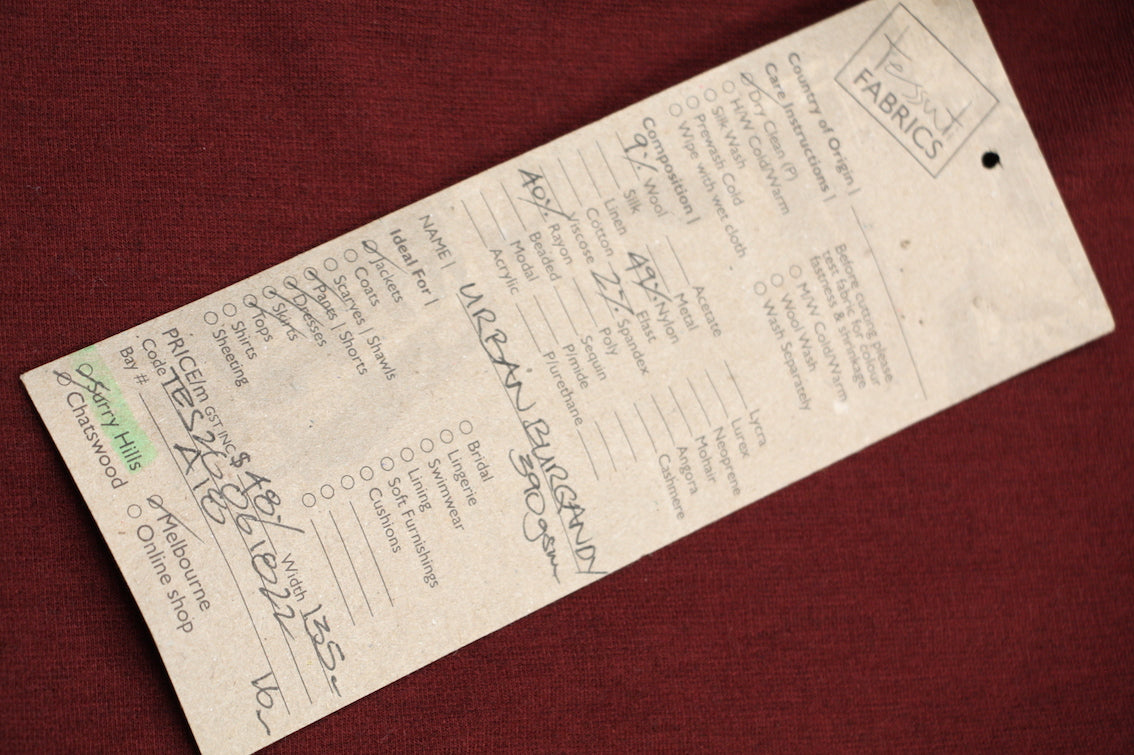 tessuti
FABRICS
Country of Origin |
Care Instructions |
Dry Clean (P)
H/W Cold/Warm
Silk Wash
Prewash Cold
Wipe with wet cloth
Before cutting please
test fabric for colour
fastness & shrinkage
M/W Cold/Warm
Wool Wash
Wash Separately
Composition |
9% Wool
Silk
Linen
Cotton
Viscose
40% Rayon
Beaded
Modal
Acrylic
Acetate
Metal
49% Nylon
Elast
2% Spandex
Poly
Sequin
P/mide
P/urethane
Lycra
Lurex
Neoprene
Mohair
Angora
Cashmere
NAME | URBAN BURGANDY
390gsm
Ideal For |
Jackets
Coats
Scarves | Shawls
Pants | Shorts
Dresses
Skirts
Tops
Shirts
Sheeting
Bridal
Lingerie
Swimwear
Lining
Soft Furnishings
Cushions
PRICE/m GST INC $ 48/ Width 135
Code TES26861022
Bay # A18
Surry Hills
Chatswood
Melbourne
Online shop